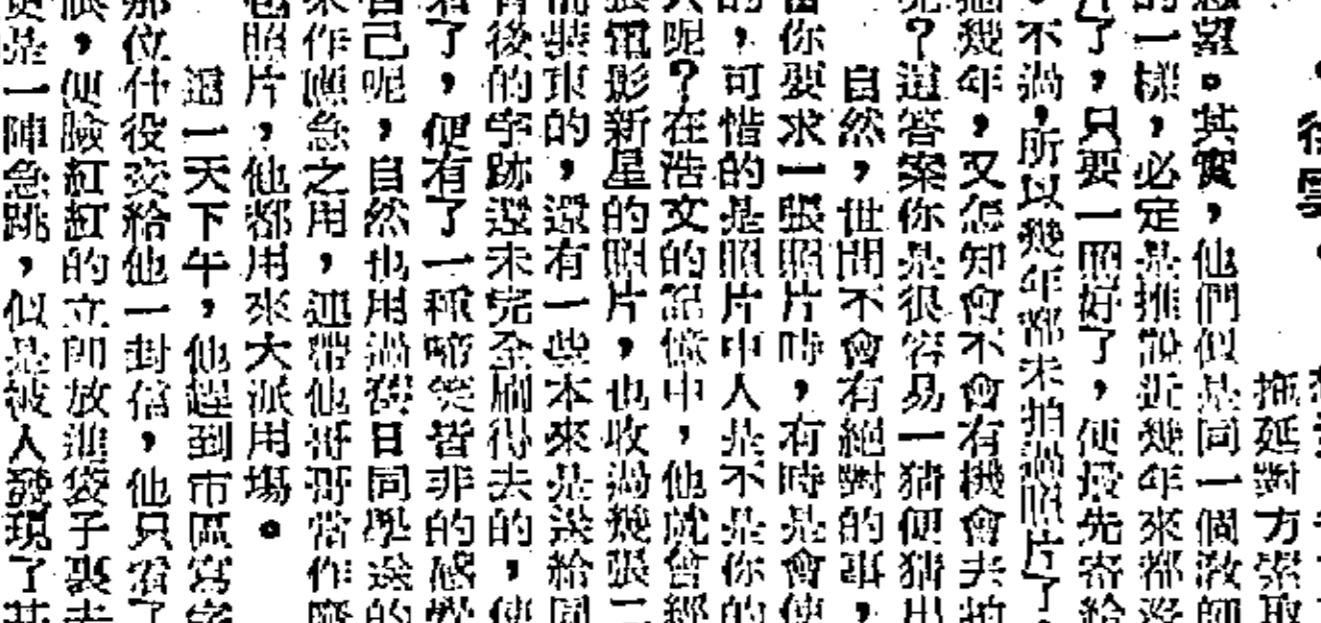 拖延對方索取
。其實，他們似是同一個教師
的一樣，必定是推說近幾年來都沒
了，只要一照好了，便最先寄給
。不過，所以幾年都未拍過照片了，
幾年，又怎知會不會有機會去拍
？這答案你是很容易一猜便猜出
自然，世間不會有絕對的事，
你要求一張照片時，有時是會使
的，可惜的是照片中人是不是你的
呢？在浩文的記憶中，他就曾經
張電影新星的照片，也收過幾張二
裝束的，還有一些本來是送給同
背後的字跡還未完全刷得去的，使
了，便有了一種啼笑皆非的感覺
自己呢，自然也用過舊日同學送的
來作應急之用，連帶他哥哥當作
照片，他都用來大派用場。
這一天下午，他趕到市區寫字
那位什役交給他一封信，他只看了
，便臉紅紅的立即放進袋子裏去
更是一陣急跳，似是被人發現了甚